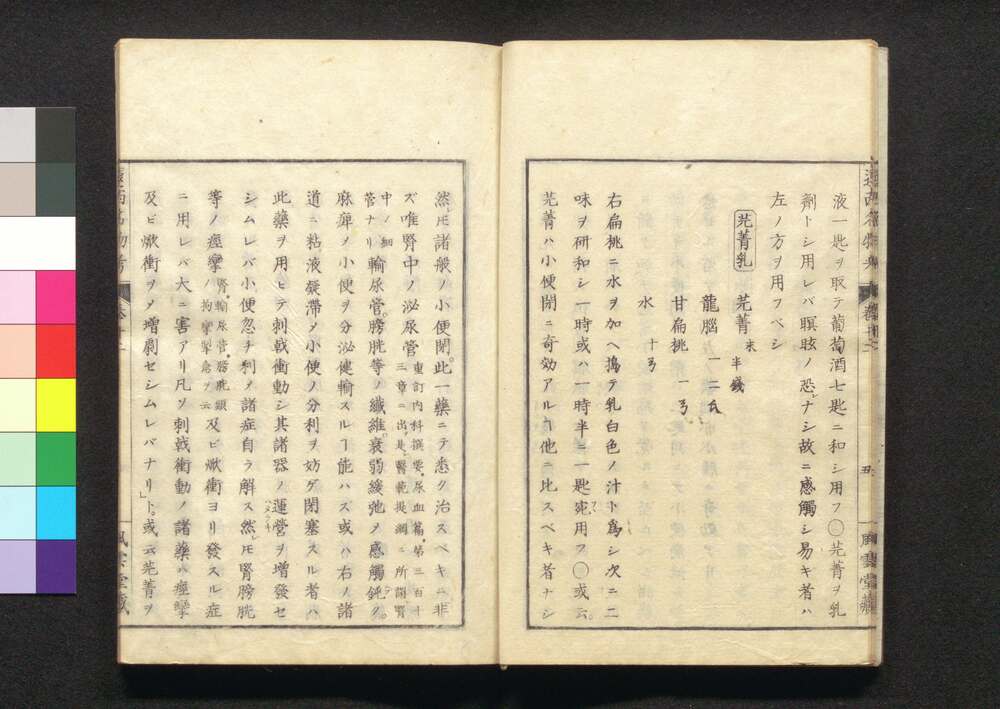 液一匙ヲ取テ葡萄酒七匙ニ和シ用フ〇芫菁ヲ乳
劑トシ用レバ瞑眩ノ恐ナシ故ニ感觸シ易キ者ハ
左ノ方ヲ用フベシ
芫菁乳 芫菁末 半錢
龍腦 一二瓜
甘扁桃 一ㄢ
水 十ㄢ
右扁桃ニ水ヲ加ヘ搗テ乳白色ノ汁ト爲シ次ニ二
味ヲ研和シ一時或ハ一時半ニ一匙宛用フ〇或云。
芫菁ハ小便閉ニ奇効アルヿ他ニ比スベキ者ナシ
五
風雲堂藏
然ㇳモ諸般ノ小便閉。此一藥ニテ悉ク治スベキニ非
ズ唯腎中ノ泌尿管 重訂内科撰要。尿血篇。第三百十三章ニ出是。醫範提綱ニ所謂腎
中ノ細管ナリ 輸尿管。膀胱等ノ纖維。衰弱緩弛ヲ感觸鈍ク。
麻痺ノ小便ヲ分泌健輸スルヿ能ハズ或ハ右ノ諸
道ニ粘液凝滯ノ小便ノ分利ヲ妨ゲ閉塞スル者ハ
此藥ヲ用ヒテ刺戟衝動シ其諸器ノ運營ヲ增發セ
シムレバ小便忽チ利ノ諸症自ラ解ス然ㇾㇳモ腎膀胱
等ノ痙攣 腎。輸尿管。膀胱頭ノ拘攣掣急ヲ云 及ビ焮衝ヨリ發スル症
ニ用レバ大ニ害アリ凡ソ刺戟衝動ノ諸藥ハ痙攣
及ビ焮衝ヲノ增劇セシムレバナリ」ト。或云芫菁ヲ
風雲堂藏